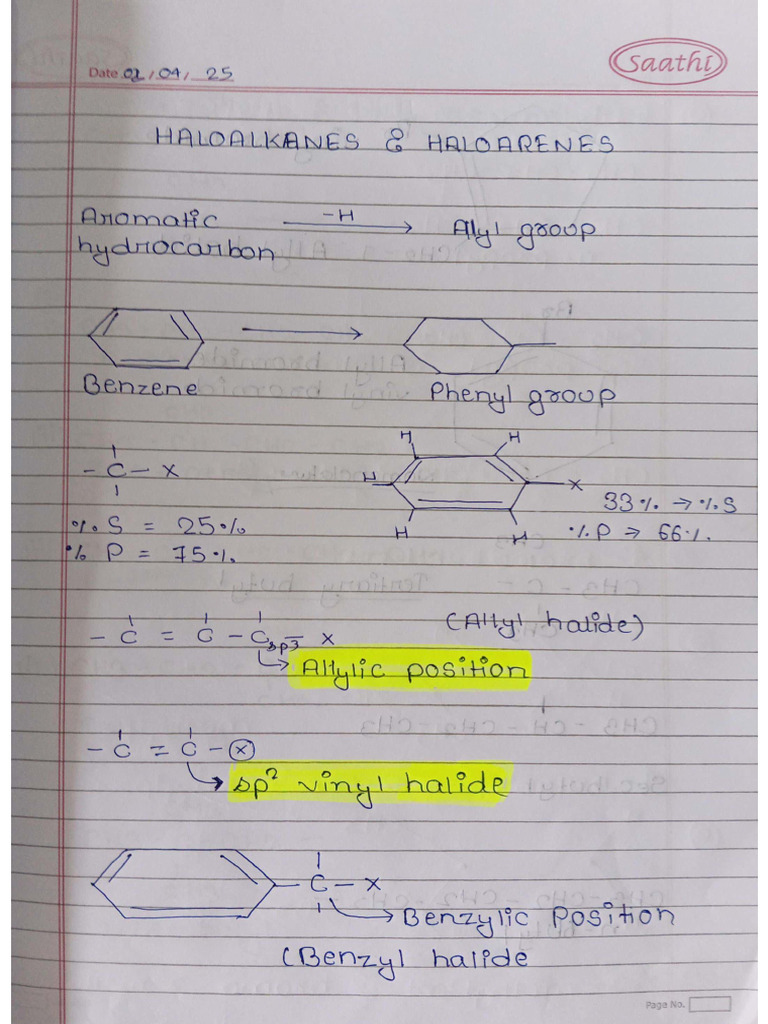 saathi
Date 02 / 04 / 25
HALOALKANES & HALOARENES
Aromatic hydrocarbon -H → Alyl group
Benzene
Phenyl group
- C - X
% S = 25%
% P = 75%
H H
H X
H H
33% → % S
% P → 66%.
- C = C - C sp3 - X (Allyl halide)
Allylic position
- C = C - X
sp² vinyl halide
C - X
Benzylic Position
(Benzyl halide
Page No.